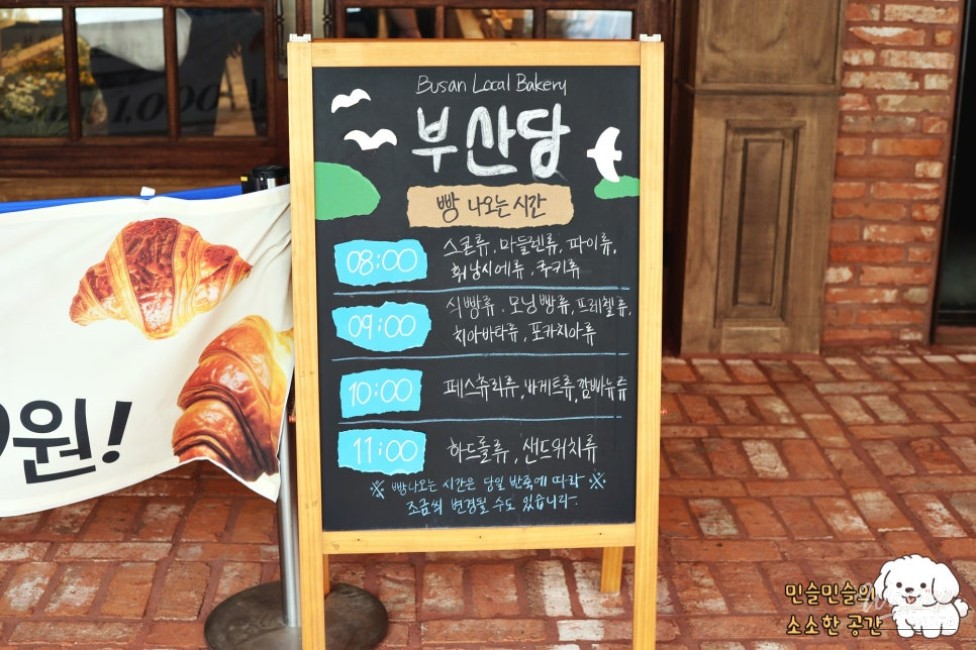 Busan Local Bakery
부산당
빵 나오는 시간
08:00
스콘류, 마들렌류, 파이류,
휘낭시에류, 쿠키류
09:00
식빵류, 모닝빵류, 프레첼류,
치아바타류, 포카치아류
10:00
페스츄리류, 바게트류, 깜빠뉴류
11:00
하드롤류, 샌드위치류
※ 빵나오는 시간은 당일 반죽에 따라 ※
조금씩 변경될 수도 있습니다.
원!
민슬민슬의
소소한 공간